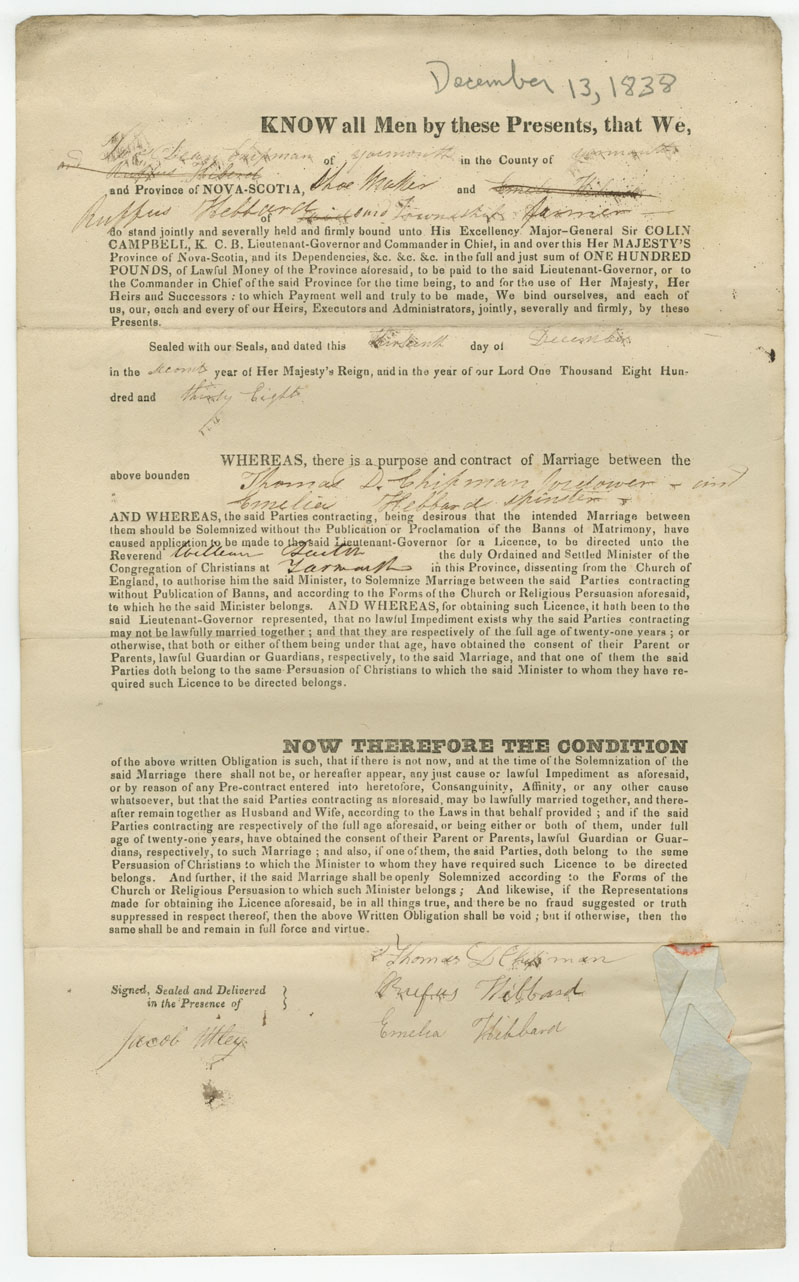 December 13, 1838
KNOW all Men by these Presents, that We,
Chipman of Yarmouth in the County of Yarmouth
and
and Province of NOVA-SCOTIA, Shoe Maker and
Ruffus Hebbard of said Township farmer
do stand jointly and severally held and firmly bound unto His Excellency Major-General Sir COLIN
CAMPBELL, K. C. B. Lieutenant-Governor and Commander in Chief, in and over this Her MAJESTY'S
Province of Nova-Scotia, and its Dependencies, &c. &c. &c. in the full and just sum of ONE HUNDRED
POUNDS, of Lawful Money of the Province aforesaid, to be paid to the said Lieutenant-Governor, or to
the Commander in Chief of the said Province for the time being, to and for the use of Her Majesty, Her
Heirs and Successors : to which Payment well and truly to be made, We bind ourselves, and each of
us, our, each and every of our Heirs, Executors and Administrators, jointly, severally and firmly, by these
Presents.
Sealed with our Seals, and dated this day of December
in the second year of Her Majesty's Reign, and in the year of our Lord One Thousand Eight Hun-
dred and thirty Eight
WHEREAS, there is a purpose and contract of Marriage between the
above bounden Thomas D. Chipman Widower and
Emelia Hebbard spinster
AND WHEREAS, the said Parties contracting, being desirous that the intended Marriage between
them should be Solemnized without the Publication or Proclamation of the Banns of Matrimony, have
caused application to be made to the said Lieutenant-Governor for a Licence, to be directed unto the
Reverend William the duly Ordained and Settled Minister of the
Congregation of Christians at Yarmouth in this Province, dissenting from the Church of
England, to authorise him the said Minister, to Solemnize Marriage between the said Parties contracting
without Publication of Banns, and according to the Forms of the Church or Religious Persuasion aforesaid,
to which he the said Minister belongs. AND WHEREAS, for obtaining such Licence, it hath been to the
said Lieutenant-Governor represented, that no lawful Impediment exists why the said Parties contracting
may not be lawfully married together ; and that they are respectively of the full age of twenty-one years ; or
otherwise, that both or either of them being under that age, have obtained the consent of their Parent or
Parents, lawful Guardian or Guardians, respectively, to the said Marriage, and that one of them the said
Parties doth belong to the same Persuasion of Christians to which the said Minister to whom they have re-
quired such Licence to be directed belongs.
NOW THEREFORE THE CONDITION
of the above written Obligation is such, that if there is not now, and at the time of the Solemnization of the
said Marriage there shall not be, or hereafter appear, any just cause or lawful Impediment as aforesaid,
or by reason of any Pre-contract entered into heretofore, Consanguinity, Affinity, or any other cause
whatsoever, but that the said Parties contracting as aforesaid, may be lawfully married together, and there-
after remain together as Husband and Wife, according to the Laws in that behalf provided ; and if the said
Parties contracting are respectively of the full age aforesaid, or being either or both of them, under full
age of twenty-one years, have obtained the consent of their Parent or Parents, lawful Guardian or Guar-
dians, respectively, to such Marriage ; and also, if one of them, the said Parties, doth belong to the same
Persuasion of Christians to which the Minister to whom they have required such Licence to be directed
belongs. And further, if the said Marriage shall be openly Solemnized according to the Forms of the
Church or Religious Persuasion to which such Minister belongs ; And likewise, if the Representations
made for obtaining the Licence aforesaid, be in all things true, and there be no fraud suggested or truth
suppressed in respect thereof, then the above Written Obligation shall be void ; but if otherwise, then the
same shall be and remain in full force and virtue.
Thomas D Chipman
Signed, Sealed and Delivered
in the Presence of
Rufus Hibbard
Emelia Hibbard
Jacob Utley